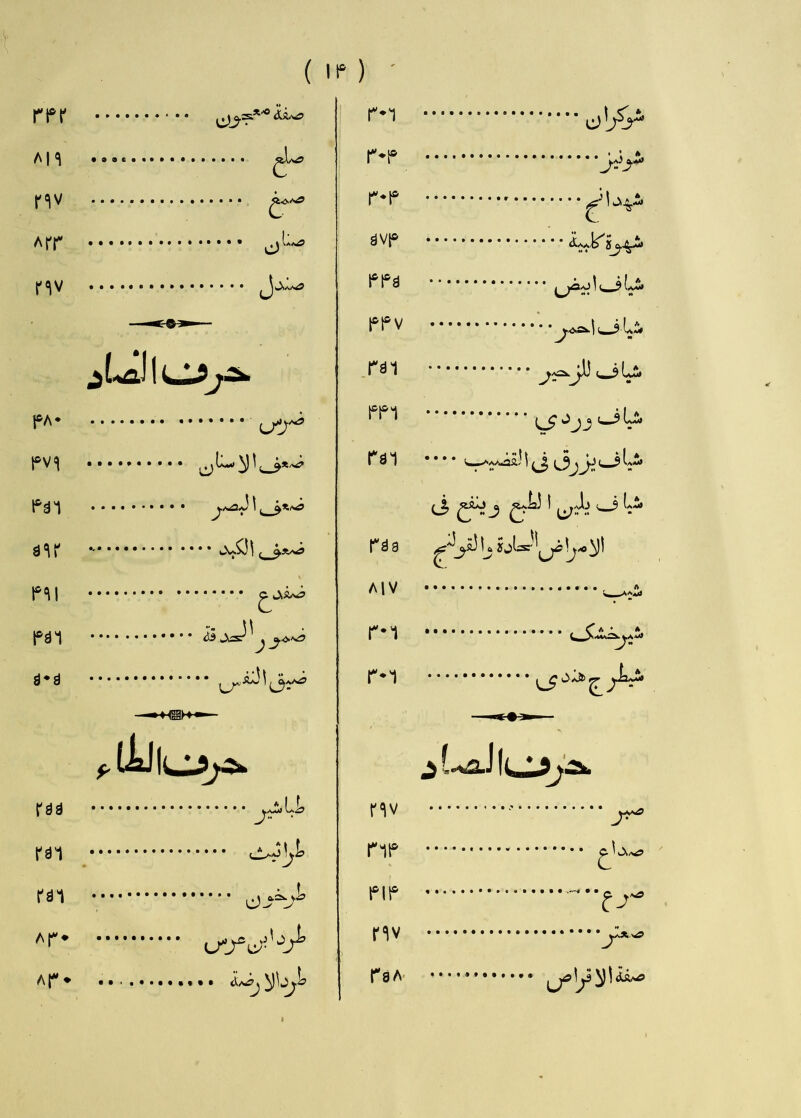 ( ۱۴ )
شوكران ۳۰۶
شونيز ۳۰۴
شهدانج ۳۰۴
شهوة كلبية ۵۷۴
شياف ابيض ۴۴۵
شياف احمر ۴۴۷
شياف للزحير ۲۵۶
شياف وردي ۴۴۶
شياف يزرق في القضيب ۲۵۶
شياف يلين الطبع وينفع في
الامراض الحادة والقولنج ۲۵۵
شيب ۸۱۷
شيرخشك ۳۰۶
شيطرج هندي ۳۰۶
حرف الصاد
صبر ۲۹۷
صداع ۳۶۴
صرع ۴۱۴
صعتر ۲۹۷
صفة الاقراص ۲۵۸
صفة معجون ۳۴۲
صلع ۸۱۹
صمغ ۲۹۷
صنان ۸۲۳
صندل ۲۹۷
حرف الضاد
ضرس ۴۸۰
ضعف الاسنان ۴۷۹
ضعف البصر ۴۵۶
ضعف الكبد ۵۹۲
ضفدع ۴۹۱
ضمور الحدقة ۴۵۶
ضيق النفس ۵۰۵
حرف الطاء
طباشير ۲۵۵
طراثيث ۲۵۶
طرخون ۲۵۶
طرد ابن عرس ۸۳۰
طرد الارضة ۸۳۰